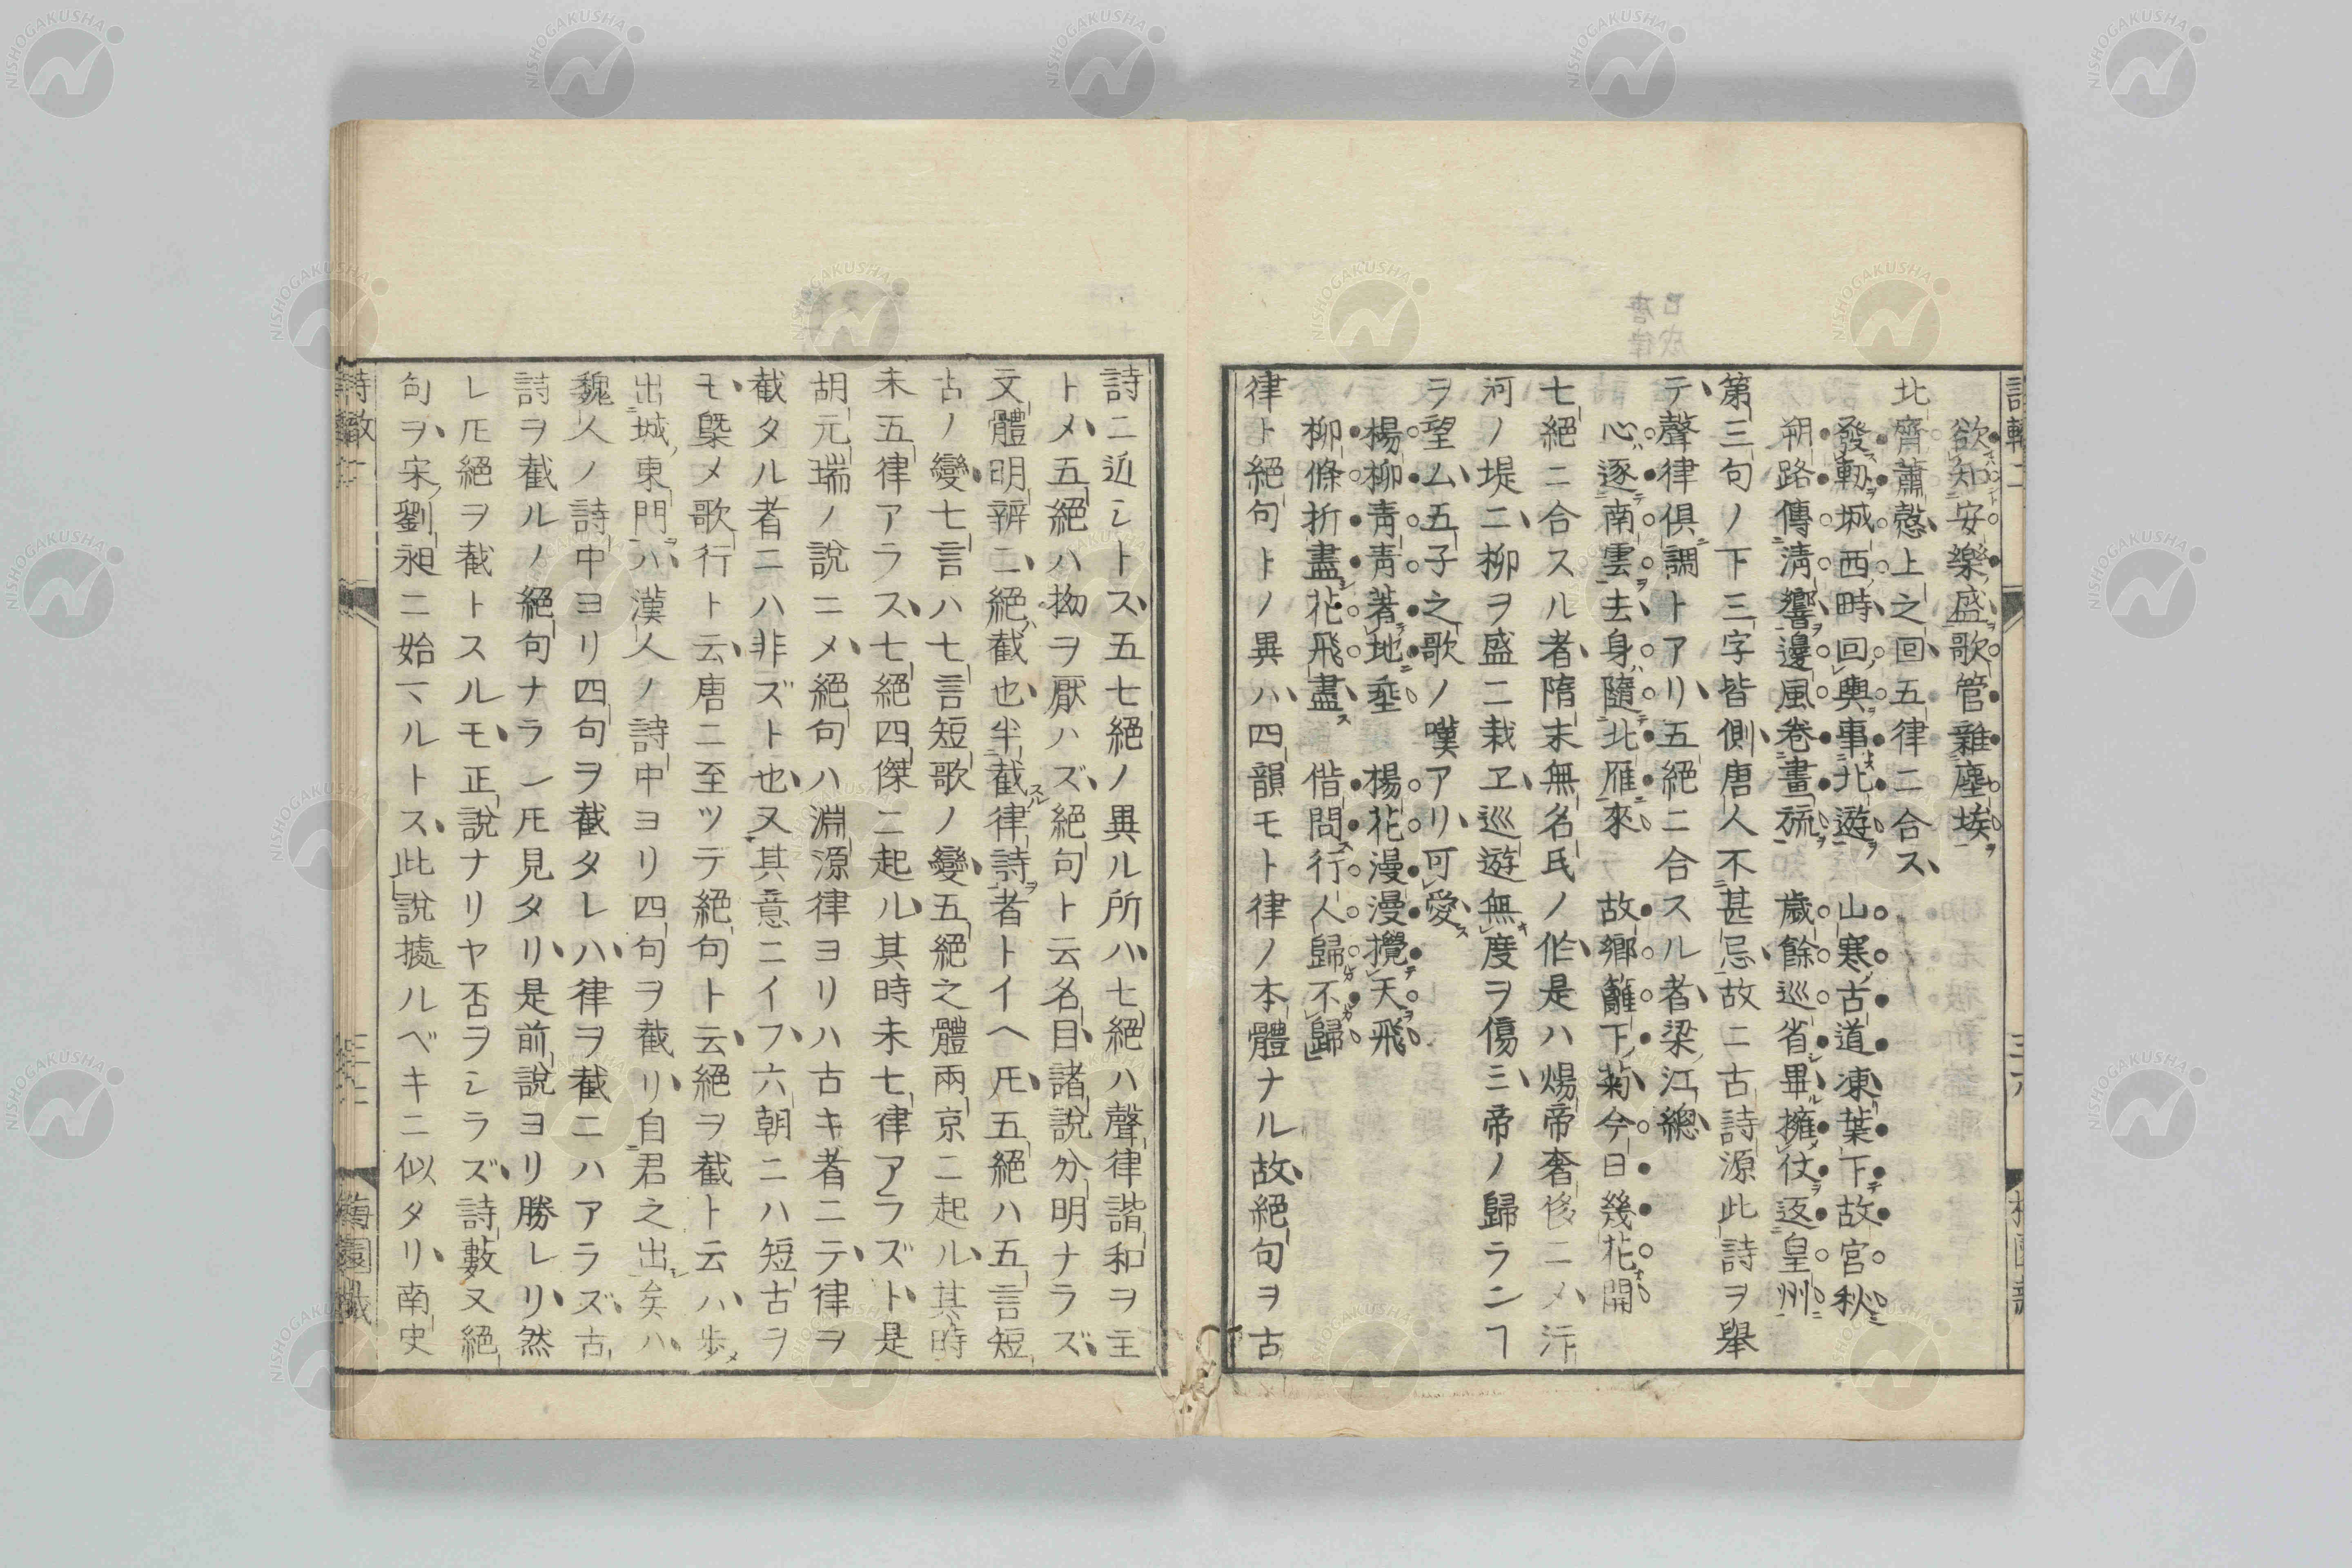 欲知安樂盛歌管雜塵埃
北齊蕭愨上之回五律ニ合ス、
發軔城西畤回輿事北遊　山寒古道凍葉下故宮秋
朔路傳淸響邊風卷畫旒　歲餘巡省畢擁仗返皇州
第三句ノ下三字皆側、唐人不甚忌、故ニ古詩源此詩ヲ舉
テ、聲律俱調トアリ、五絕ニ合スル者、梁江總
心逐南雲去身隨北雁來　故鄉籬下菊今日幾花開
七絕ニ合スル者、隋末無名氏ノ作、是ハ煬帝奢侈ニメ、汴
河ノ堤ニ、柳ヲ盛ニ栽ヱ、巡遊無度ヲ傷ミ、帝ノ歸ランヿ
ヲ望ム、五子之歌ノ嘆アリ、可愛、
楊柳靑靑著地垂　楊花漫漫攪天飛
柳條折盡花飛盡　借問行人歸不歸
律ト絕句トノ異ハ、四韻モト律ノ本體ナル故、絕句ヲ古
詩ニ近シトス、五七絕ノ異ル所ハ、七絕ハ聲律諧和ヲ主
トメ、五絕ハ拗ヲ厭ハズ、絕句ト云名目、諸說分明ナラズ、
文體明辨ニ、絕截也、半截律詩者トイヘ𪜈、五絕ハ五言短
古ノ變、七言ハ七言短歌ノ變、五絕之體兩京ニ起ル、其時
未五律アラス、七絕四傑ニ起ル、其時未七律アラズト、是
胡元瑞ノ說ニメ、絕句ハ淵源律ヨリハ古キ者ニテ、律ヲ
截タル者ニハ非ズト也、又其意ニイフ、六朝ニハ短古ヲ
モ、槩メ歌行ト云、唐ニ至ツテ絕句ト云、絕ヲ截ト云ハ、步
出城東門ハ、漢人ノ詩中ヨリ四句ヲ截リ、自君之出矣ハ、
魏人ノ詩中ヨリ四句ヲ截タレハ、律ヲ截ニハアラズ、古
詩ヲ截ルノ絕句ナラン𪜈見タリ、是前說ヨリ勝レリ、然
レ𪜈絕ヲ截トスルモ、正說ナリヤ否ヲシラズ、詩數又絕
句ヲ、宋劉昶ニ始マルトス、此說據ルベキニ似タリ、南史
詩轍
梅園藏